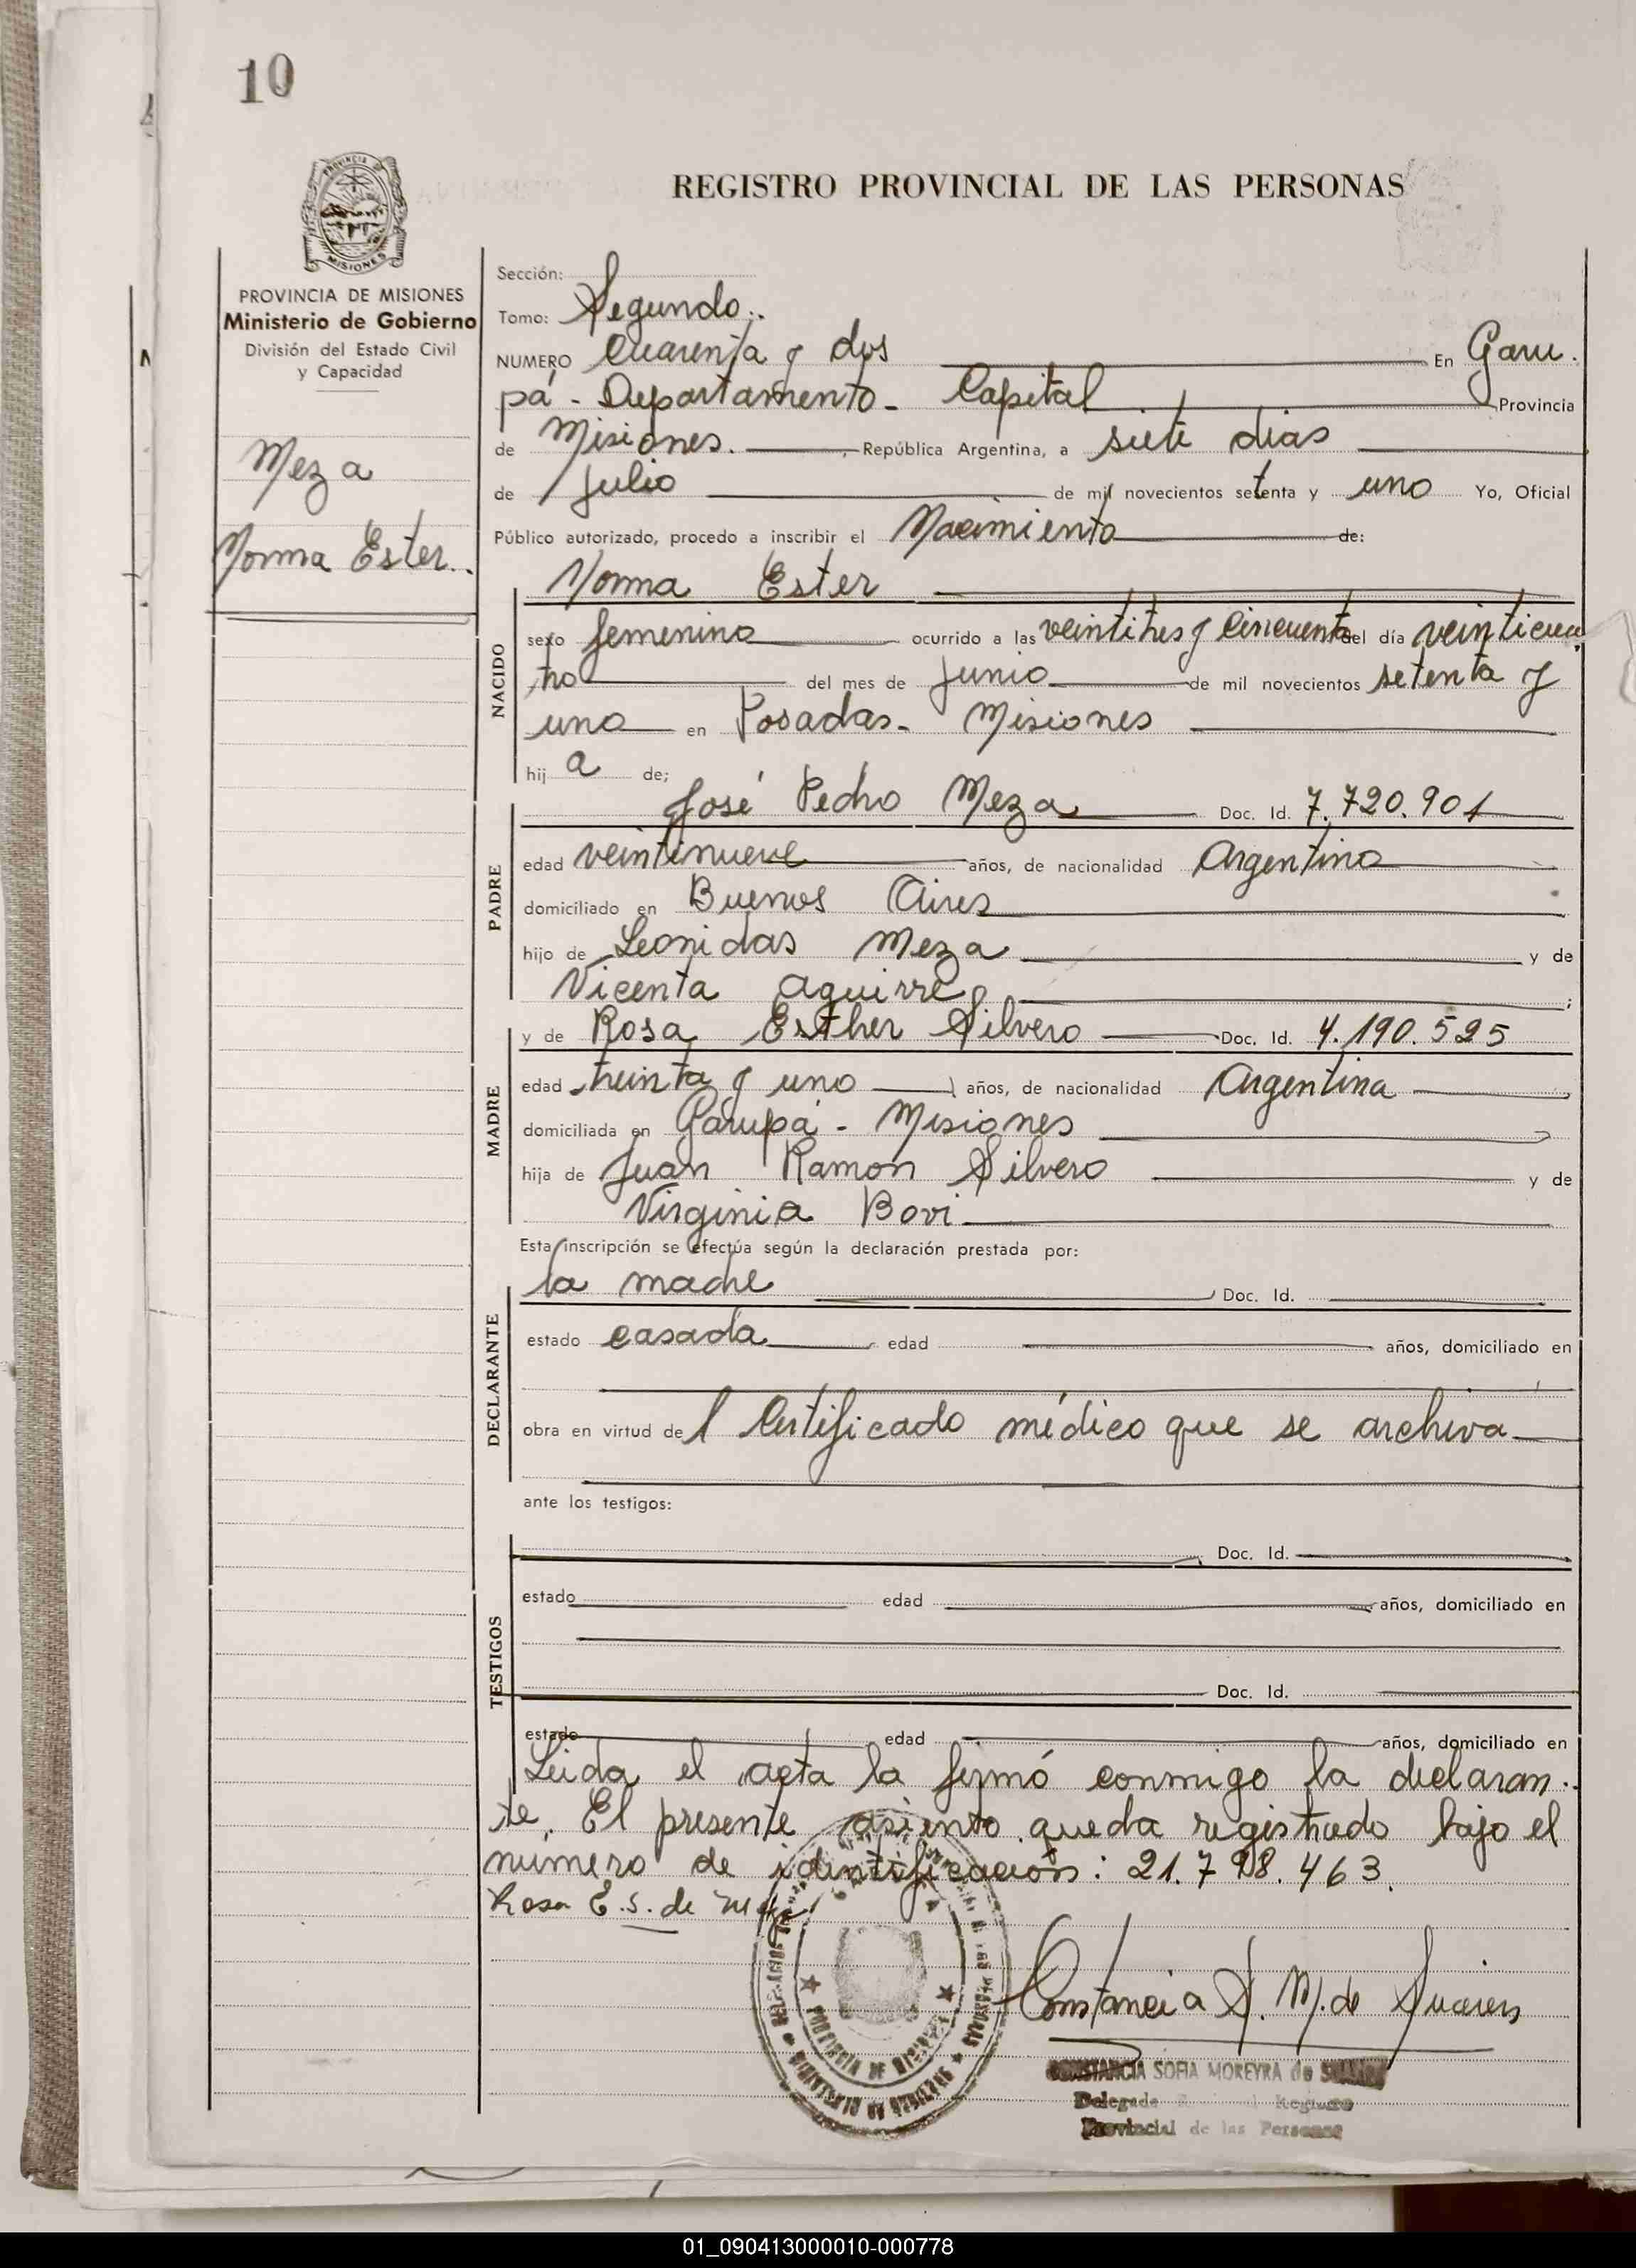 10
REGISTRO PROVINCIAL DE LAS PERSONAS
PROVINCIA DE MISIONES
MISIONES
PROVINCIA DE MISIONES
Ministerio de Gobierno
División del Estado Civil
y Capacidad
Meza
Norma Ester..
Sección:
Tomo: Segundo..
NUMERO Cuarenta y dos En Garu.
pá - Departamento - Capital Provincia
de Misiones. , República Argentina, a siete dias
de Julio de mil novecientos setenta y uno Yo, Oficial
Público autorizado, procedo a inscribir el Nacimiento de:
Norma Ester
NACIDO
sexo femenino ocurrido a las veintitres y cincuenta del día veinticua
tro del mes de Junio de mil novecientos setenta y
uno en Posadas - Misiones
hij a de;
José Pedro Meza Doc. Id. 7.720.901
PADRE
edad veintinueve años, de nacionalidad Argentino
domiciliado en Buenos Aires
hijo de Leonidas Meza y de
Vicenta Aguirre ;
y de Rosa Esther Silvero Doc. Id. 4.190.525
MADRE
edad treinta y uno años, de nacionalidad Argentina
domiciliada en Garupá - Misiones
hija de Juan Ramon Silvero y de
Virginia Bovi
Esta inscripción se efectúa según la declaración prestada por:
la madre Doc. Id.
DECLARANTE
estado casada edad años, domiciliado en
obra en virtud de l Certificado médico que se archiva
ante los testigos:
Doc. Id.
TESTIGOS
estado edad años, domiciliado en
Doc. Id.
estado edad años, domiciliado en
Leida el acta la firmó conmigo la declaran..
te. El presente asiento queda registrado bajo el
número de identificación: 21.798.463.
Rosa E. S. de
PROVINCIA DE MISIONES
Constancia S. M. de Suarez
CONSTANCIA SOFIA MOREYRA de
Delegada Registro
Provincial de las Personas
01_090413000010-000778